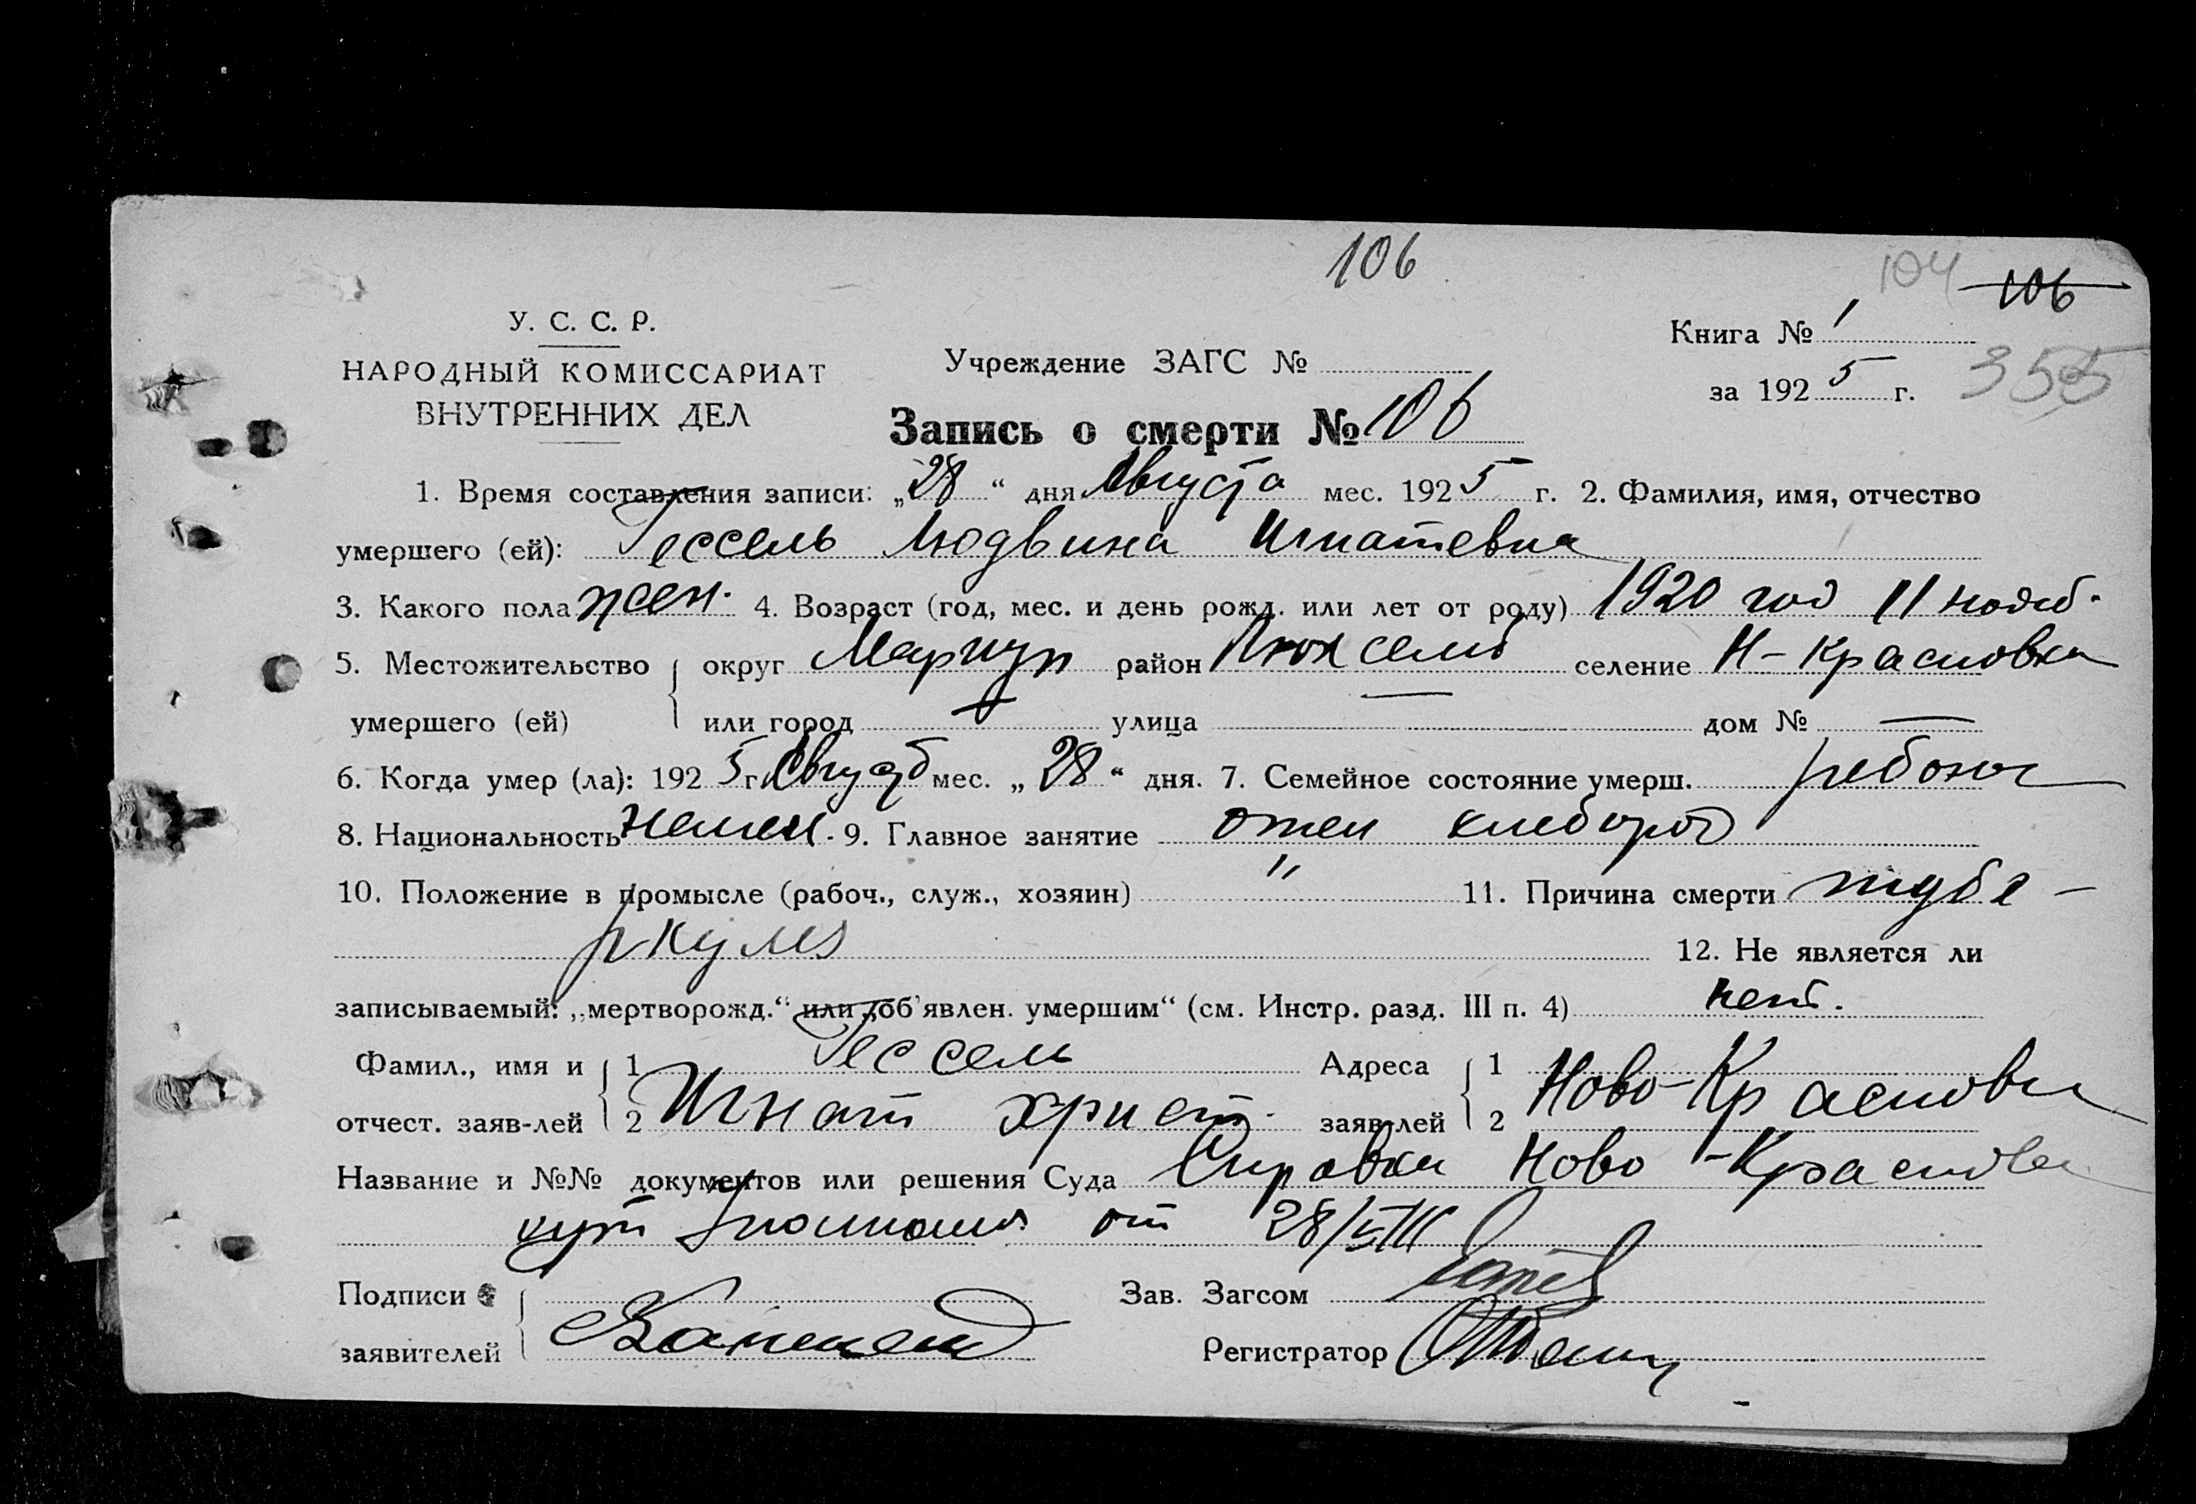 106
104 106
У. С. С. Р.
НАРОДНЫЙ КОМИССАРИАТ
ВНУТРЕННИХ ДЕЛ
Учреждение ЗАГС №
Книга № 1
за 1925 г. 355
Запись о смерти № 106
1. Время составления записи: „28“ дня Августа мес. 1925 г. 2. Фамилия, имя, отчество
умершего (ей): Гессель Людвина Игнатевна
3. Какого пола жен. 4. Возраст (год, мес. и день рожд. или лет от роду) 1920 год 11 нояб.
5. Местожительство округ Мариуп район Люксемб селение Н-Красновка
умершего (ей) или город улица — дом № —
6. Когда умер (ла): 1925 г. Август мес. „28“ дня. 7. Семейное состояние умерш. ребонок
8. Национальность немец. 9. Главное занятие отец хлебороб
10. Положение в промысле (рабоч., служ., хозяин) " 11. Причина смерти тубе-
ркулез
12. Не является ли
записываемый: „мертворожд.“ или „об'явлен. умершим“ (см. Инстр. разд. III п. 4) нет.
Фамил., имя и 1 Гессель Адреса 1 Ново-Красновка
отчест. заяв-лей 2 Игнат Христ. заяв-лей 2
Название и №№ документов или решения Суда Справка Ново-Красновки
от 28/VIII
Подписи Зав. Загсом
заявителей Регистратор